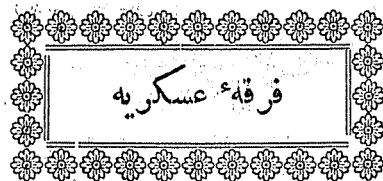 فرقهٔ عسكریه